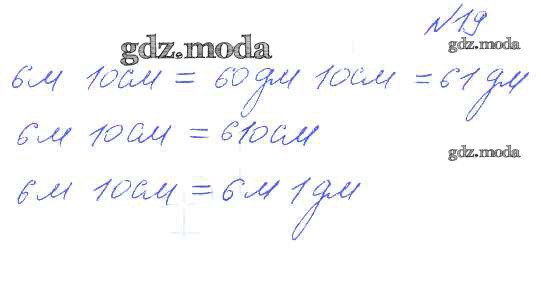 №19
gdz.moda
gdz.moda
6м 10см = 60дм 10см = 61дм
6м 10см = 610см
gdz.moda
6м 10см = 6м 1дм